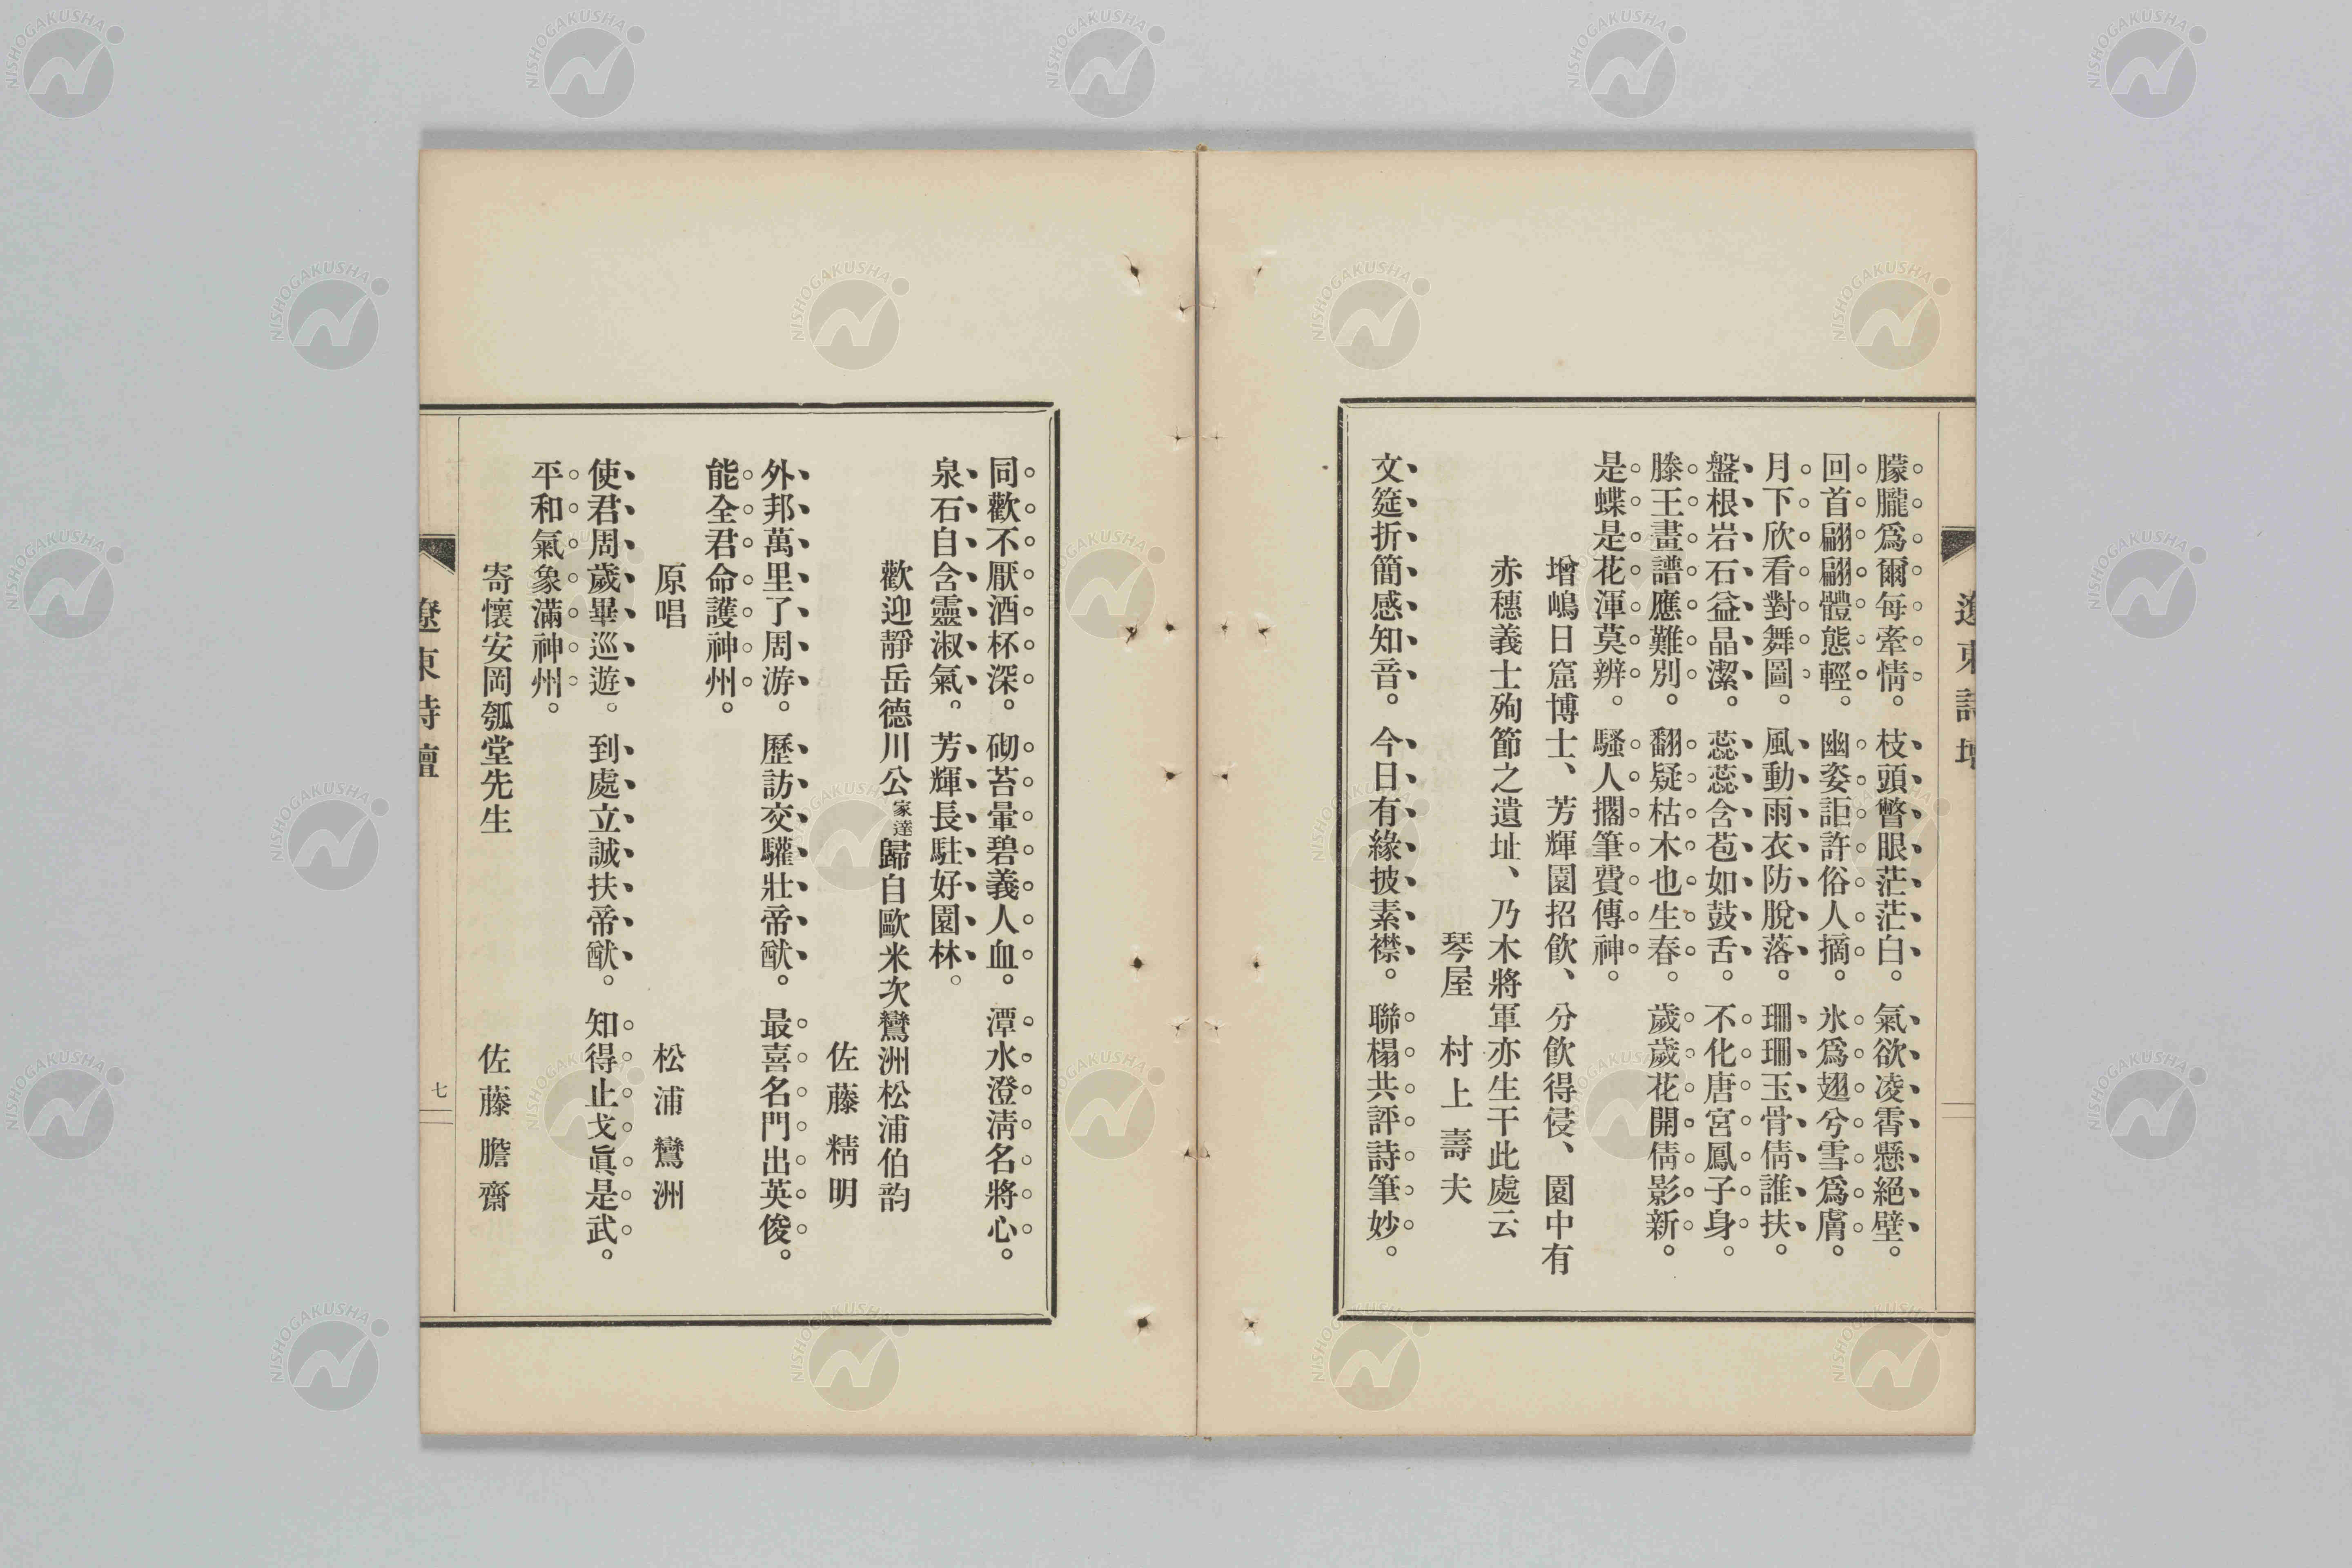 朦朧爲爾每牽情。枝頭瞥眼茫茫白。氣欲凌霄懸絕壁。
回首翩翩體態輕。幽姿詎許俗人摘。氷爲翅兮雪爲膚。
月下欣看對舞圖。風動雨衣防脫落。珊珊玉骨倩誰扶。
盤根岩石益晶潔。蕊蕊含苞如鼓舌。不化唐宮鳳子身。
滕王畫譜應難別。翻疑枯木也生春。歲歲花開倩影新。
是蝶是花渾莫辨。騷人擱筆費傳神。
增嶋日窟博士、芳輝園招飮、分飮得侵、園中有
赤穗義士殉節之遺址、乃木將軍亦生于此處云
琴屋 村上壽夫
文筵折簡感知音。今日有緣披素襟。聯榻共評詩筆妙。
同歡不厭酒杯深。砌苔暈碧義人血。潭水澄淸名將心。
泉石自含靈淑氣。芳輝長駐好園林。
歡迎靜岳德川公家達歸自歐米次鸞洲松浦伯韵
佐藤精明
外邦萬里了周游。歷訪交驩壯帝猷。最喜名門出英俊。
能全君命護神州。
原唱 松浦鸞洲
使君周歲畢巡遊。到處立誠扶帝猷。知得止戈眞是武。
平和氣象滿神州。
寄懷安岡瓠堂先生 佐藤膽齋
遼東詩壇
七
遼東詩壇
NISHOGAKUSHA